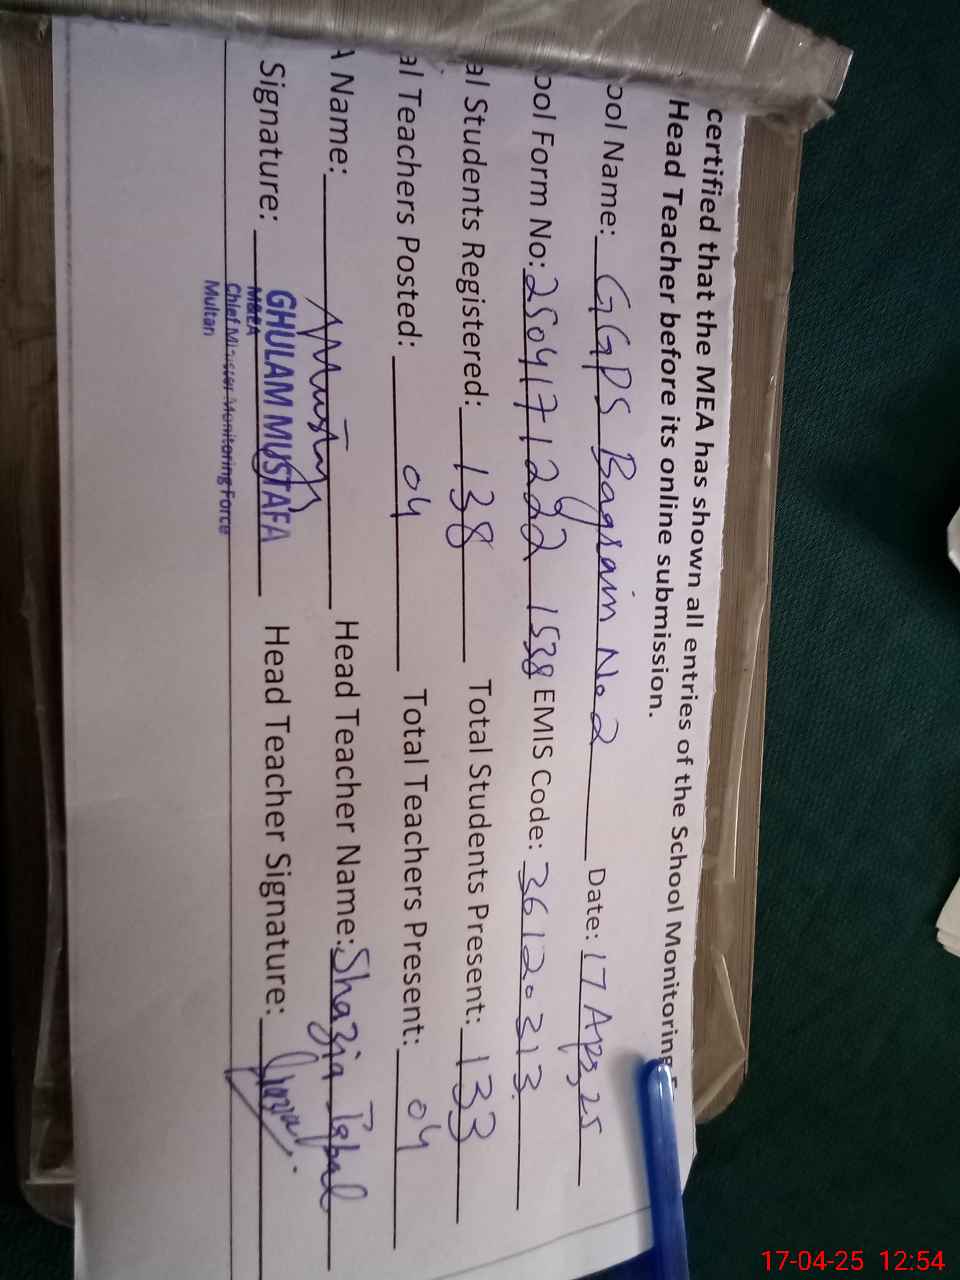 certified that the MEA has shown all entries of the School Monitoring
Head Teacher before its online submission.
ool Name: GGPS Bagrain No.2 Date: 17 Apr, 25
ool Form No: 250417 1222 1538 EMIS Code: 36120313
al Students Registered: 138 Total Students Present: 133
al Teachers Posted: 04 Total Teachers Present: 04
A Name: Head Teacher Name: Shazia Iqbal
Signature: GHULAM MUSTAFA Head Teacher Signature:
MEA
Chief Minister Monitoring Force
Multan
17-04-25 12:54